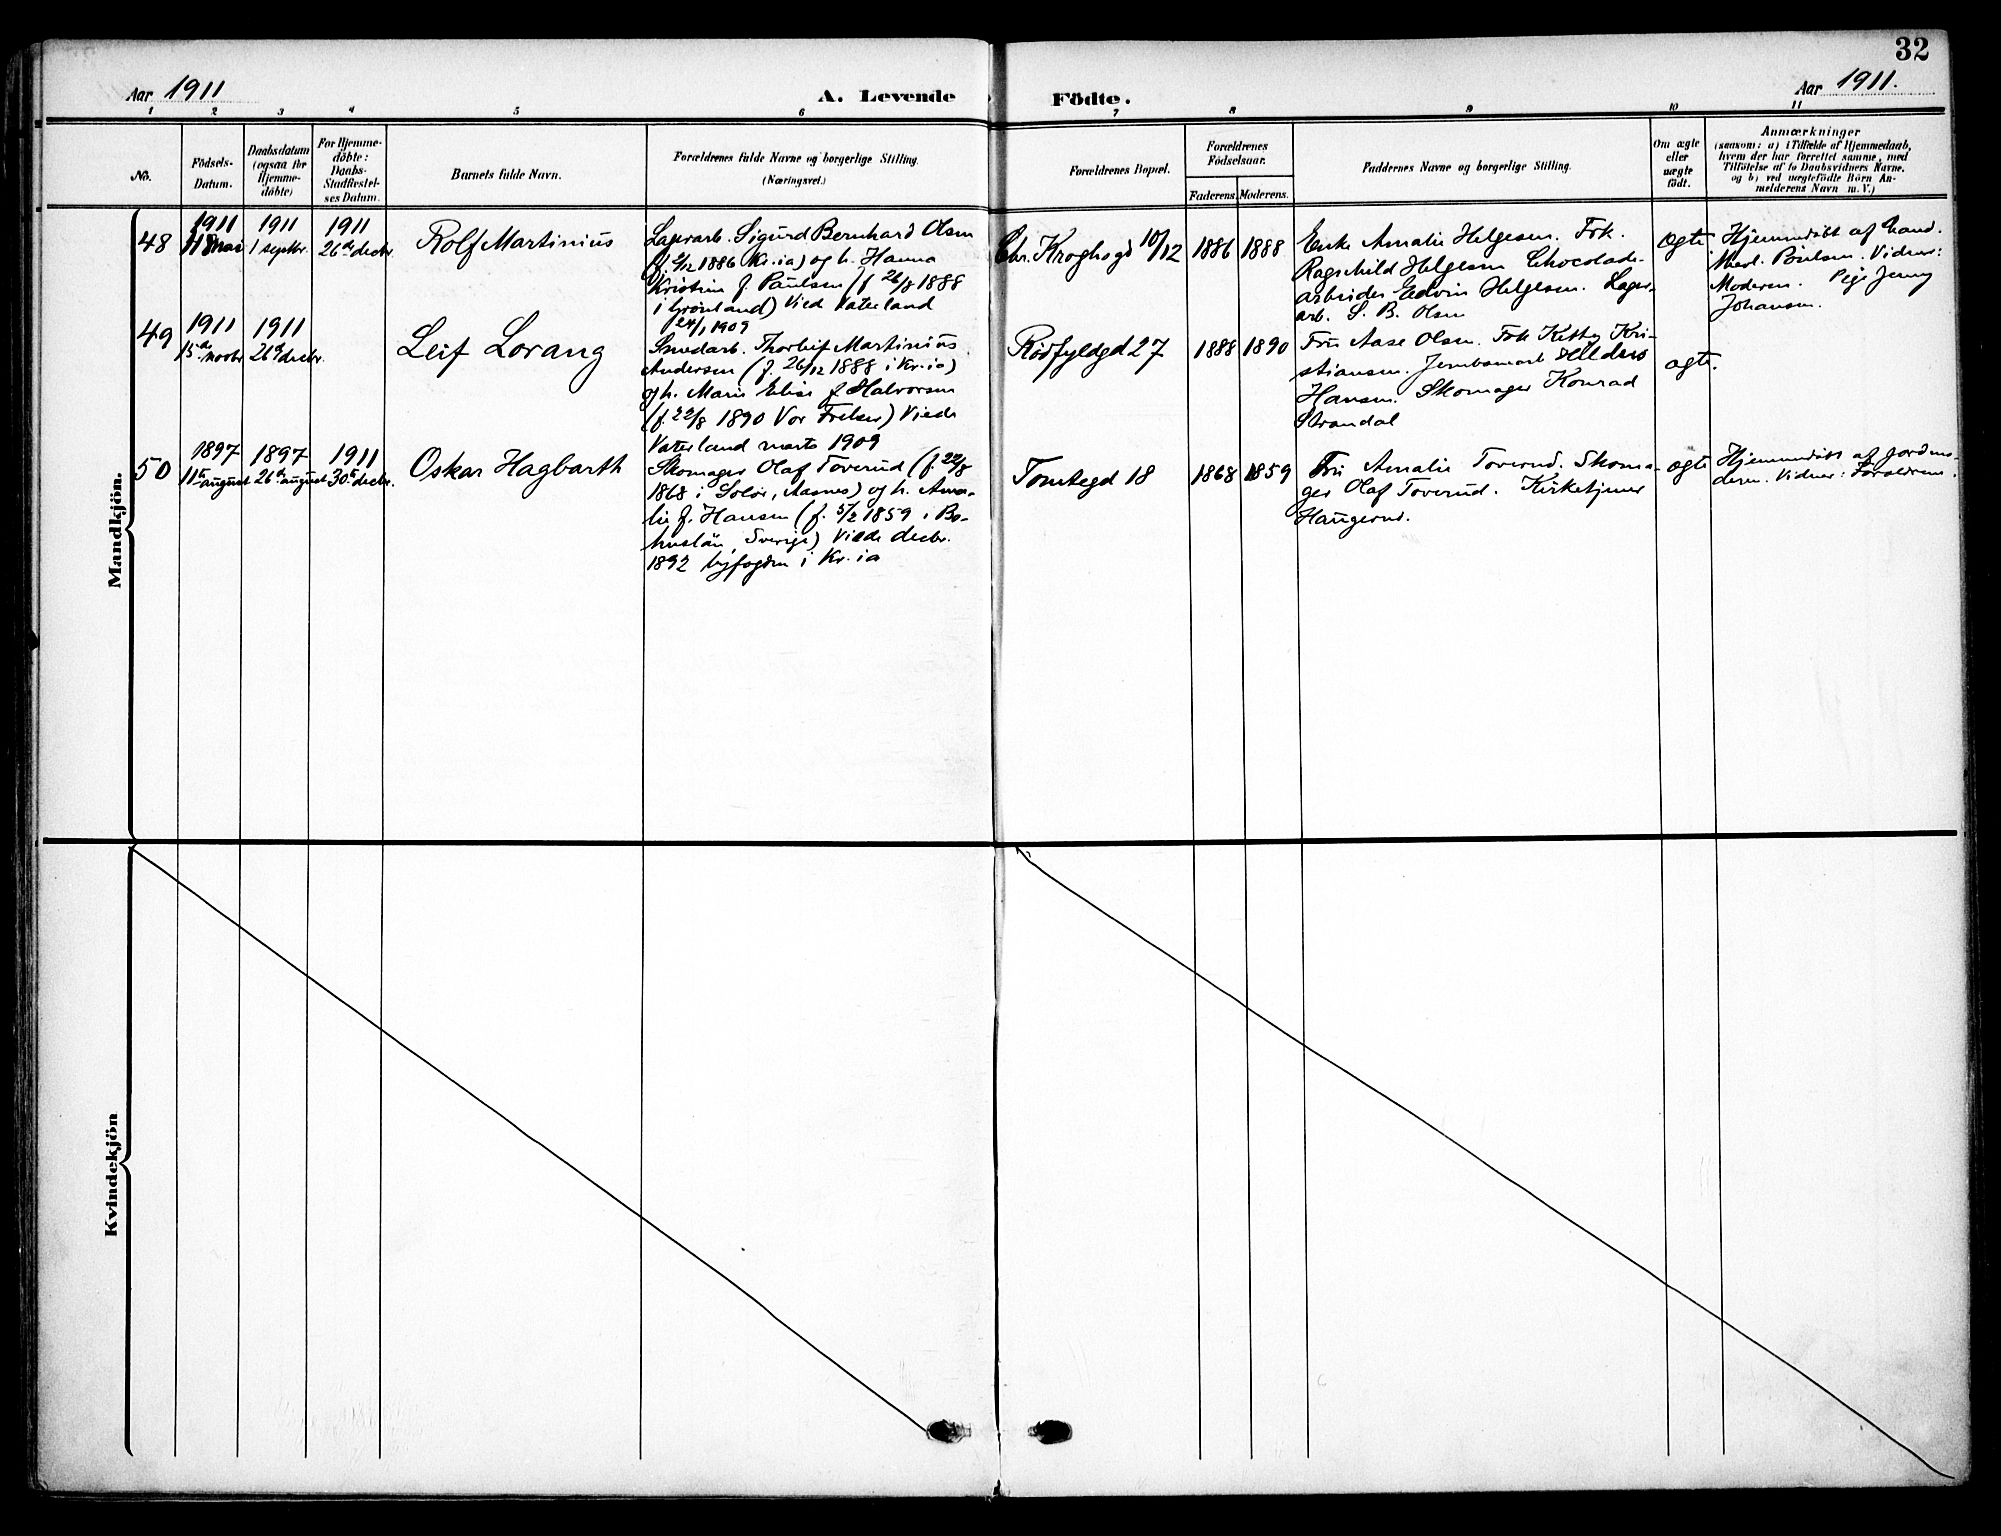 32
Aar 1911
A. Levende Födte.
Aar 1911.
1 2 3 4 5 6 7 8 9 10 11
No.
Födsels-
Datum.
Daabsdatum
(ogsaa for
Hjemme-
döbte)
For Hjemme-
döbte:
Daabs-
Stadfæstel-
ses Datum.
Barnets fulde Navn.
Forældrenes fulde Navne og borgerlige Stilling.
(Næringsvei.)
Forældrenes Bopæl.
Forældrenes
Födselsaar.
Faderens. Moderens.
Faddernes Navne og borgerlige Stilling.
Om ægte
eller
uægte
födt.
Anmærkninger
(saasom: a) i Tilfælde af Hjemmedaab,
hvem der har forrettet samme, med
Tilföielse af to Daabsvidners Navne.
og b) ved uægtefödte Börn An-
melderens Navn m. V.)
Mandkjön.
48
1911
mai
1911
1 septbr.
1911
26de decbr.
Rolf Martinius
Lagerarb. Sigurd Bernhard Olsen
1886 Kr.ia) og h. Hanna
Kristine f. Paulsen (f 26/8 1888
i Grönland) Viede Vaterland
24/1 1909
Chr. Kroghsgd 10/12
1886
1888
Enke Amalie Helgesen. Frk.
Ragnhild Helgesen Chocolade-
arbeider Edvin Helgesen. Lager-
arb. S. B. Olsen
ægte
Hjemmedöbt af cand.
med. Paulsen. Vidner:
Moderen. Pige Jenny
Johansen.
49
1911
15de novbr.
1911
26de decbr.
Leif Lorang
Smedarb. Thorleif Martinius
Andersen (f. 26/12 1888 i Kr.ia)
og h. Marie Elise f. Halvorsen
(f. 22/8 1890 Vor Frelser) Viede
Vaterland marts 1909
Rödfyldgd 27
1888
1890
Fru Aase Olsen. Frk Ketty Kri-
stiansen. Hilders
Hansen. Skomager Konrad
Strandal
ægte.
50
1897
11te august
1897
26de august
1911
30te decbr.
Oskar Hagbarth
Skomager Olaf Toverud (f. 22/8
1868 i Solör, Aasnes) og h. Ama-
lie f. Hansen (f. 5/2 1859 i Bo-
huslän, Sverige) Viede decbr.
1892 byfogden i Kr.ia
Tomtegd 18
1868
1859
Fru Amalie Toverud. Skoma-
ger Olaf Toverud. Kirketjener
Haugerud.
ægte
Hjemmedöbt af jordmo-
deren. Vidner: Forældrene.
Kvindekjön